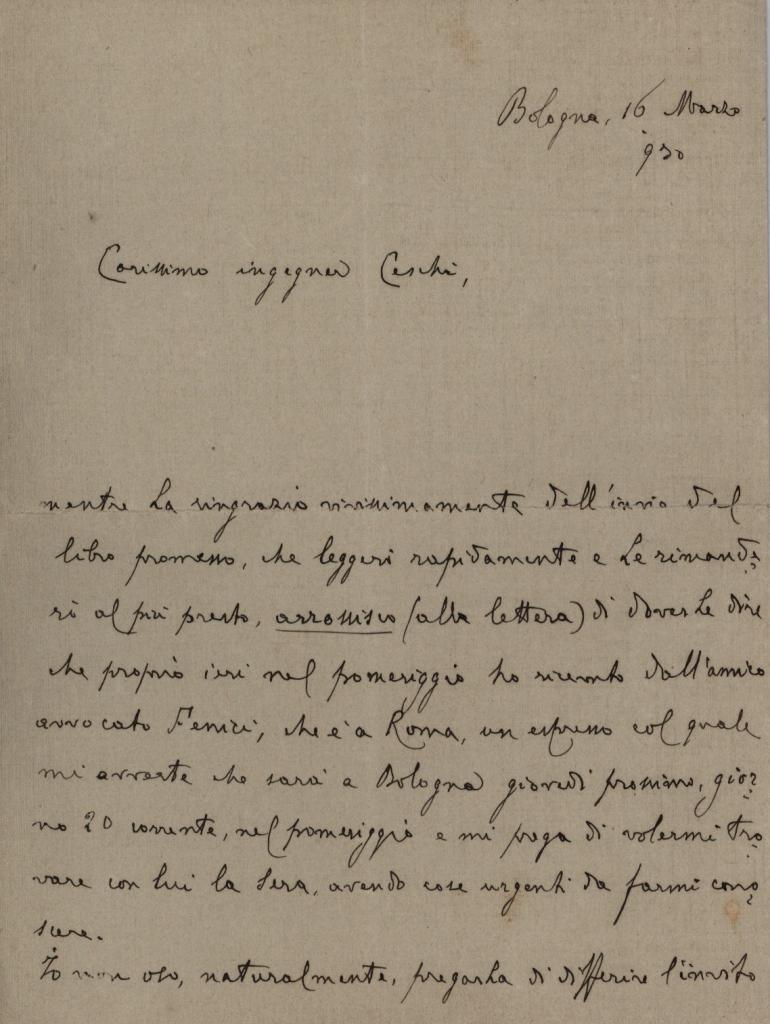 Bologna, 16 Marzo
930
Carissimo ingegner Ceschi,
mentre La ringrazio vivissimamente dell'invio del
libro promesso, che leggerò rapidamente e Le rimande-
rò al più presto, arrossisco (alla lettera) di doverLe dire
che proprio ieri nel pomeriggio ho ricevuto dall'amico
avvocato Fenici, che è a Roma, un espresso col quale
mi avverte che sarà a Bologna giovedì prossimo, gior-
no 20 corrente, nel pomeriggio e mi prega di volermi tro-
vare con lui la sera, avendo cose urgenti da farmi cono-
scere.
Io non oso, naturalmente, pregarLa di differire l'invito